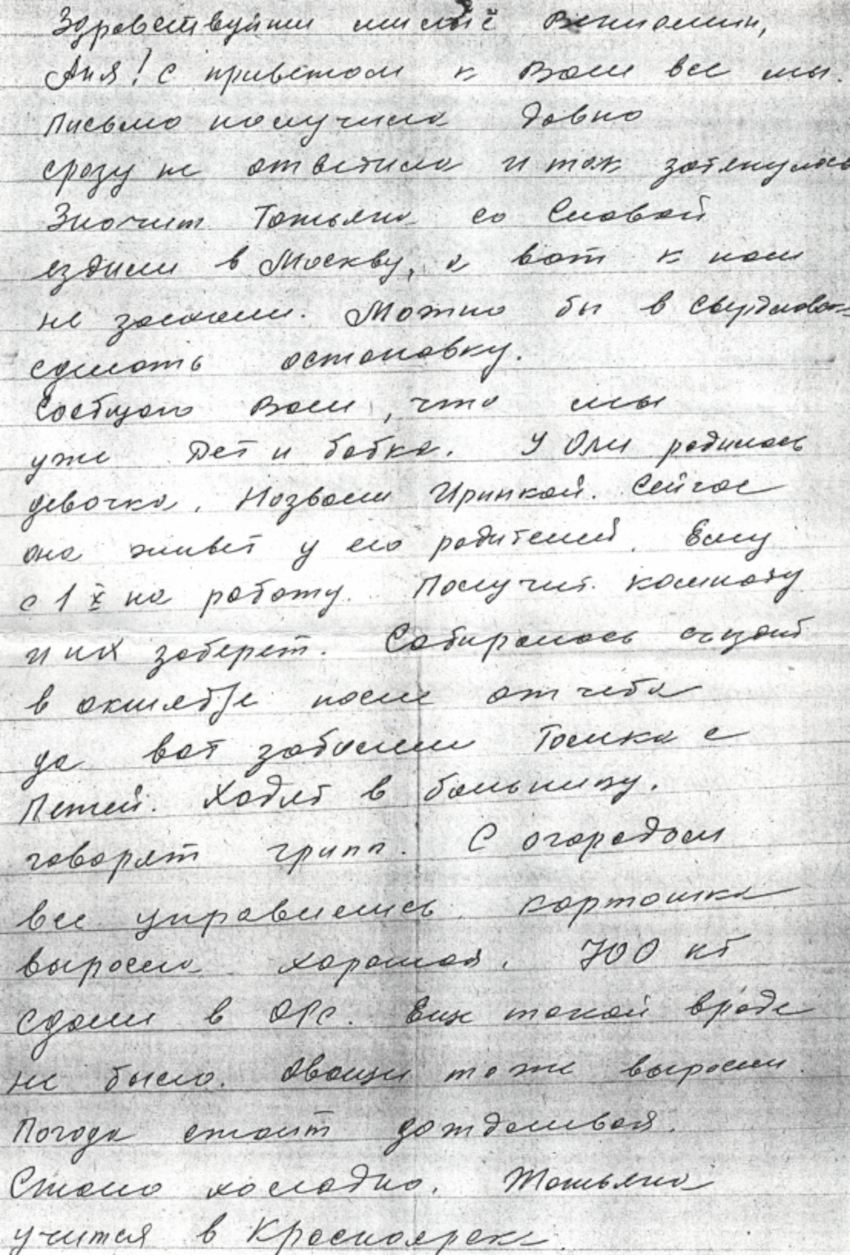 Здравствуйте милые Вениамин,
Аня! С приветом к Вам все мы.
Письмо получила давно
сразу не ответила и так затянулось
Значит Татьяна со Славой
ездили в Москву, а вот к нам
не заехали. Можно бы в Свердлов-
сделать остановку.
Сообщаю Вам, что мы
уже дед и бабка. У Оли родилась
девочка. Назвали Иринкой. Сейчас
она живет у его родителей. Ему
с 1 X на работу. Получит комнату
и их заберет. Собиралась съездить
в октябре после отчета
да вот заболели Томка с
Петей. Ходят в больницу.
говорят грипп. С огородом
все управились картошка
выросла хорошая. 700 кг
сдали в ОРС. Еще такой вроде
не было. Овощи тоже выросли
Погода стоит дождливая.
Стало холодно. Татьяна
учится в Красноярске